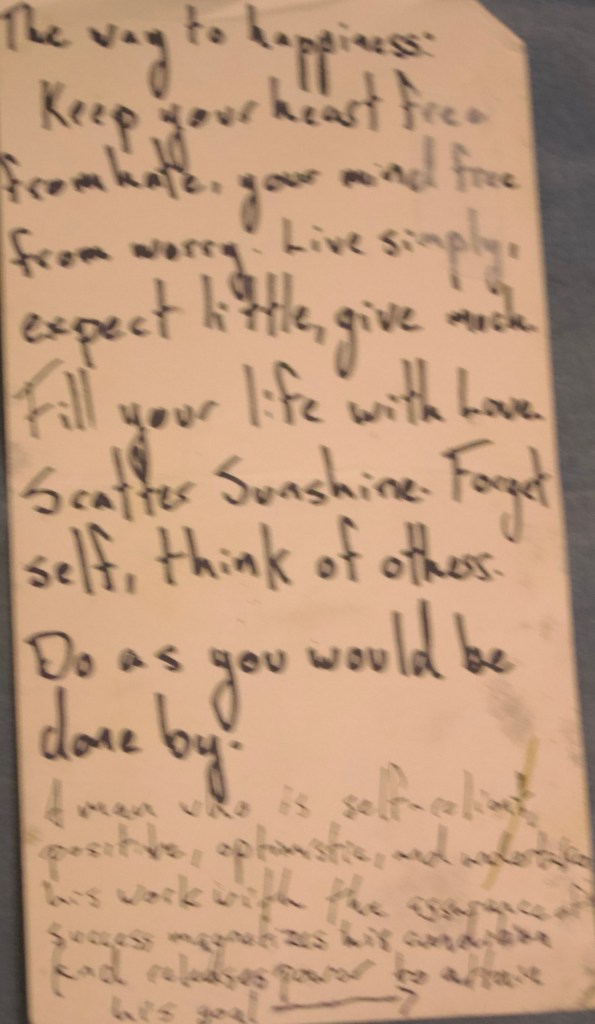 The way to happiness:
Keep your heart free
from hate, your mind free
from worry. Live simply,
expect little, give much.
Fill your life with Love.
Scatter Sunshine. Forget
self, think of others.
Do as you would be
done by.
A man who is self-reliant,
positive, optimistic, and undertakes
his work with the assurance of
success magnetizes his condition
And releases power to attain
his goal